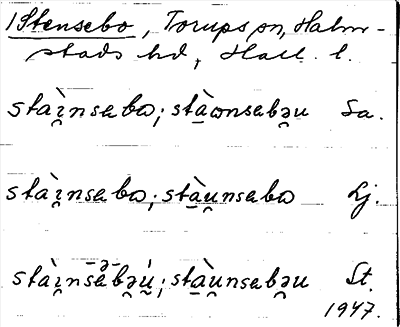 1 Stensebo, Torups sn, Halm-
stads hd, Hall. l.
stàı̯nsabɷ; stàɷnsabəu̯ Sa.
stàı̯nsabɷ; stàu̯nsabɷ Lj.
stàı̯nsə̄bə̯ú; stàu̯nsabə̯u St.
1947.